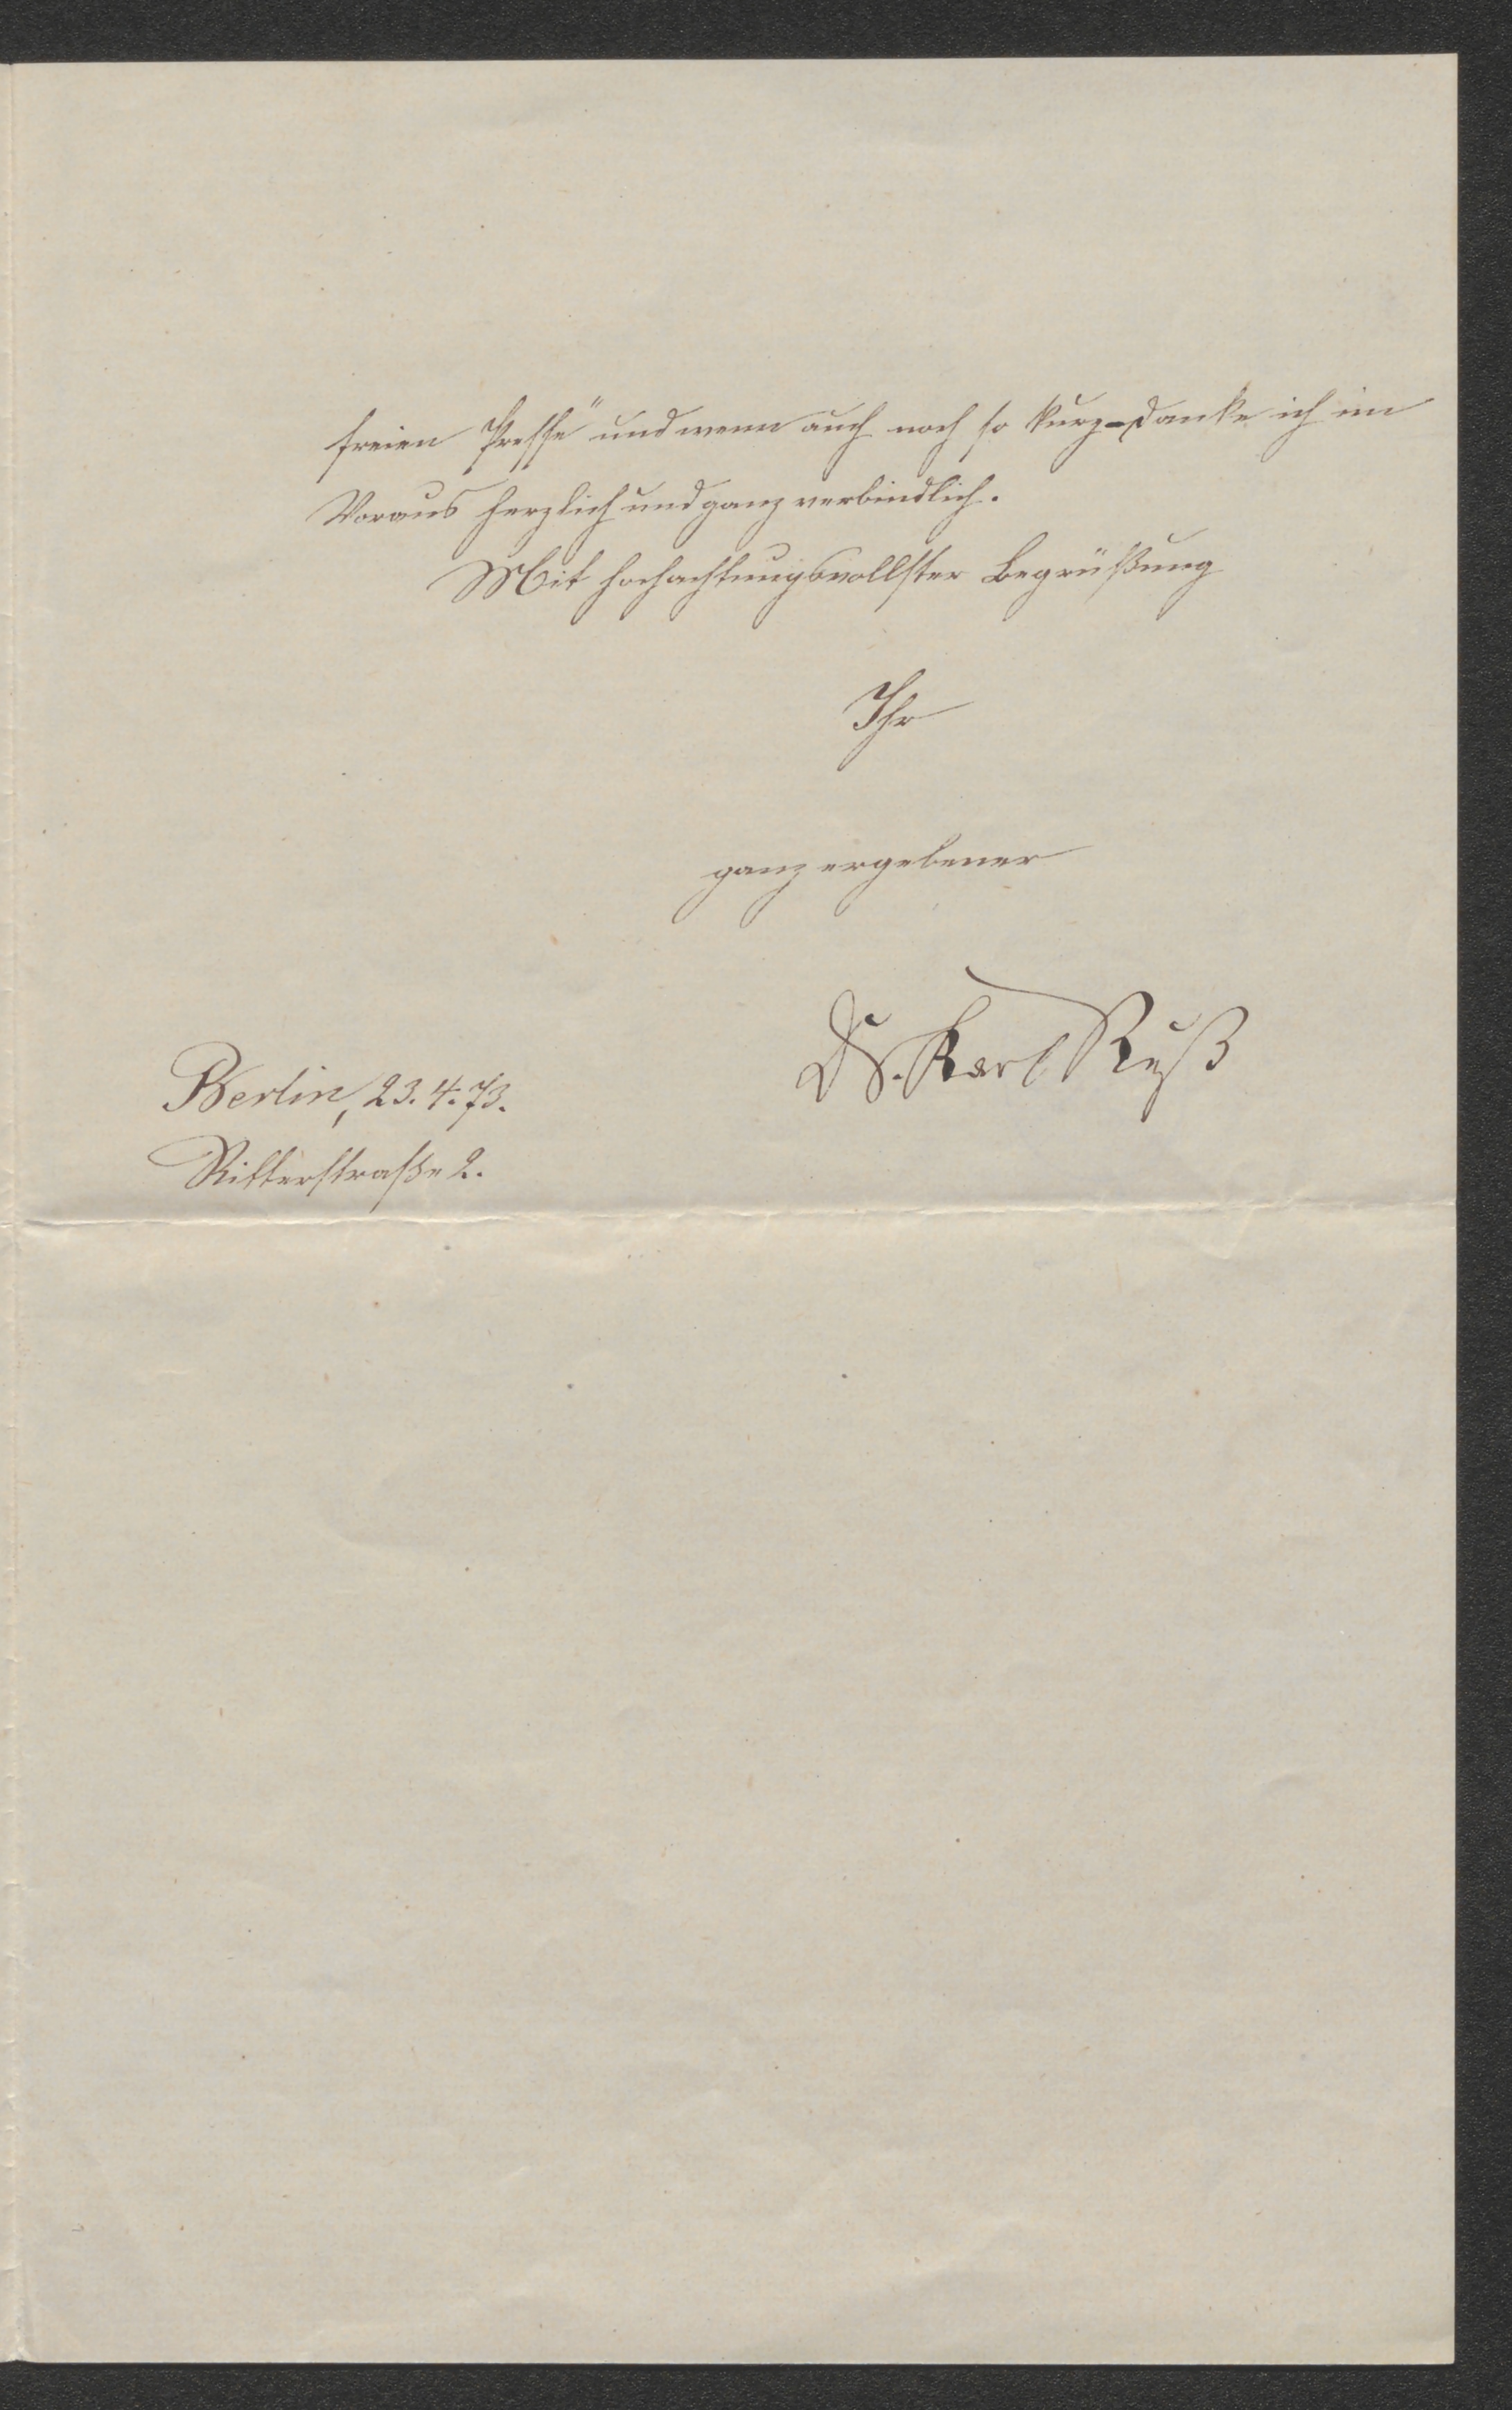 freien Presse“ und wenn auch noch so kurz – danke ich im
Voraus herzlich und ganz verbindlich.
Mit hochachtungsvollster Begrüßung
Ihr
ganz ergebener
Dr. Karl Ruß
Berlin, 23.4.73.
Ritterstraße 2.